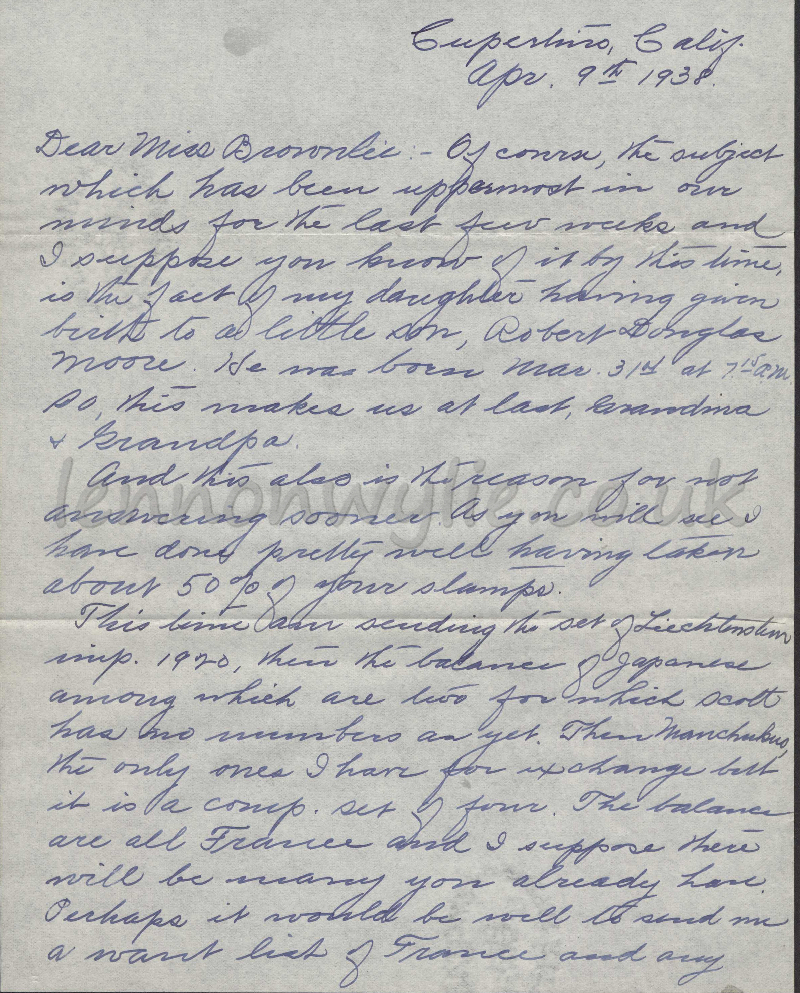 Cupertino, Calif.
Apr. 9th 1938.
Dear Miss Brownlie:- Of course, the subject
which has been uppermost in our
minds for the last few weeks and
I suppose you know of it by this time,
is the fact of my daughter having given
birth to a little son, Robert Douglas
Moore. He was born Mar. 31st at 7.15 a.m.
So, this makes us at last, Grandma
& Grandpa.
And this also is the reason for not
answering sooner As you will see I
have done pretty well having taken
about 50% of your stamps.
This time am sending the set of Liechtenstein
imp. 1920, then the balance of Japanese
among which are two for which Scott
has no numbers as yet. Then Manchukuo,
the only ones I have for exchange but
it is a comp. set of four. The balance
are all France and I suppose there
will be many you already have.
Perhaps it would be well to send me
a want list of France and any
lennonwylie.co.uk